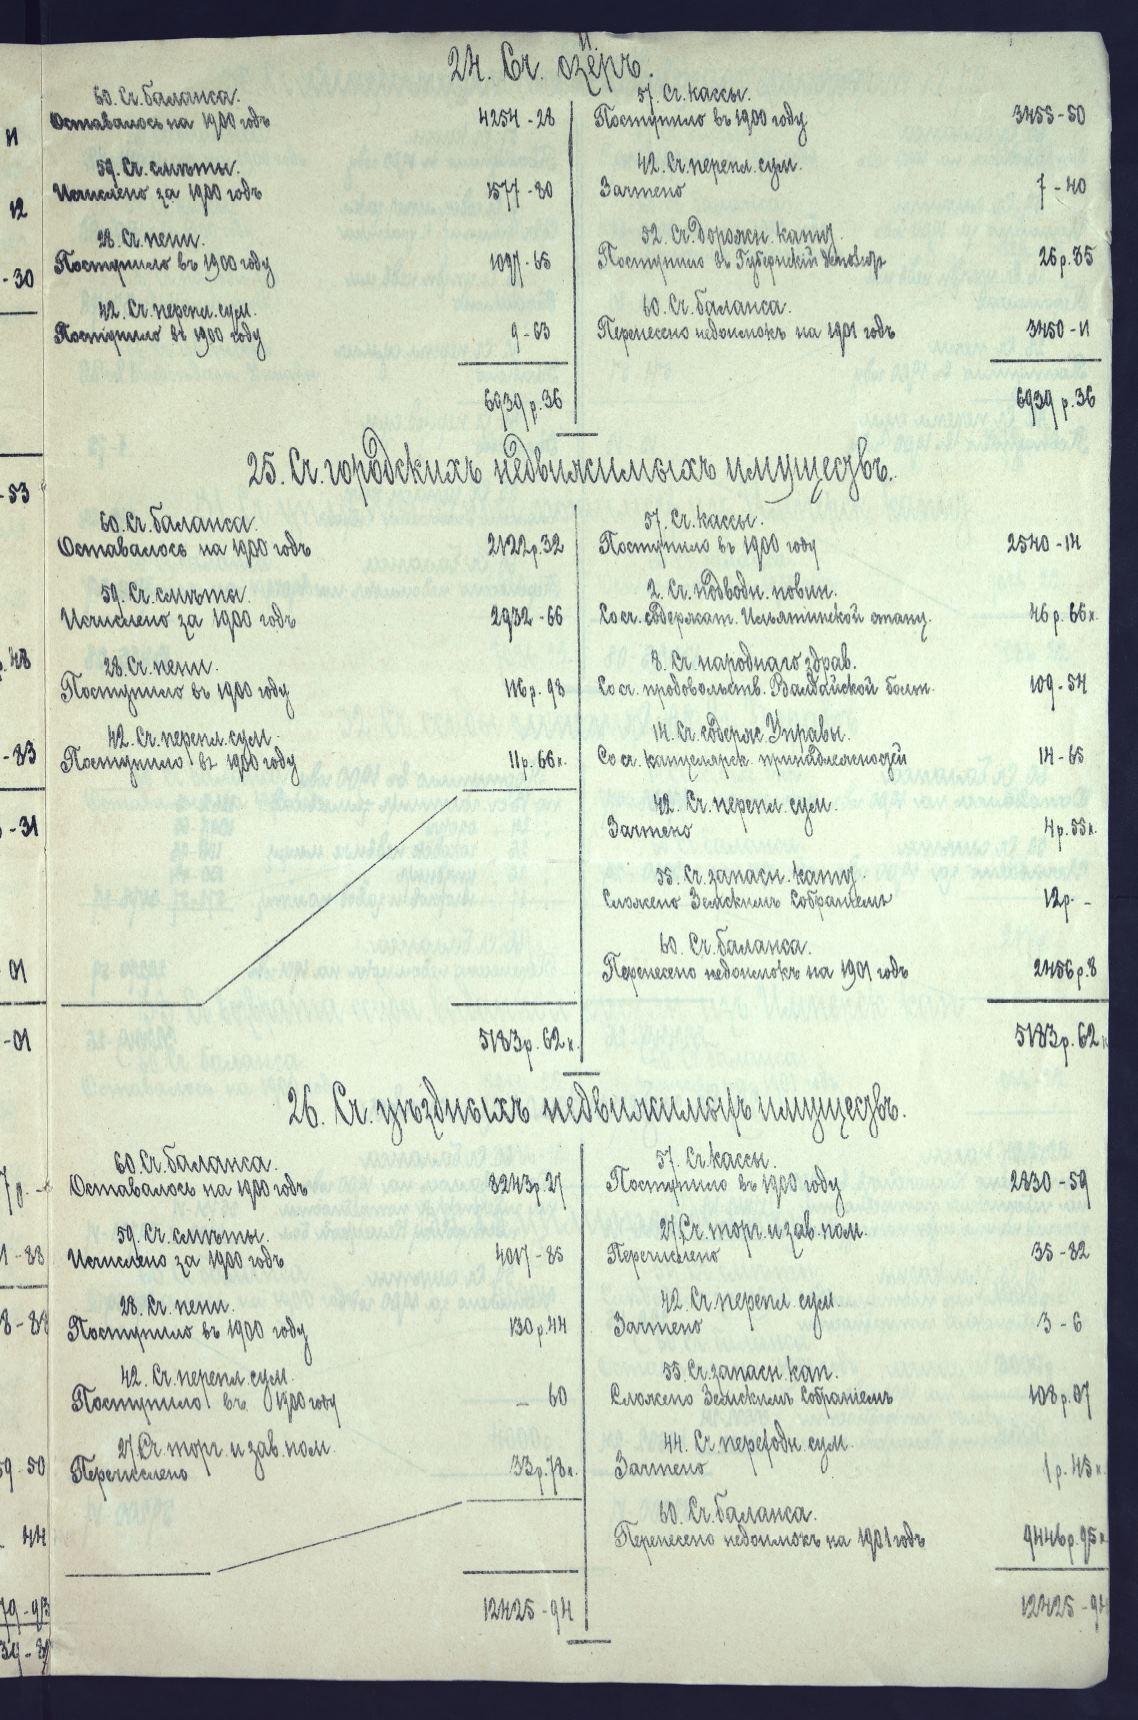 11.
24. Сч. озёръ.
60. Сч. баланса.
Оставалось на 1900 годъ 4254 - 28
59. Сч. смѣты.
Исчислено за 1900 годъ 1577 - 80
28. Сч. пени.
Поступило въ 1900 году 1097 - 65
42. Сч. перепл. сум.
Поступило въ 1900 году 9 - 63
6939 р. 36
57. Сч. кассы.
Поступило въ 1900 году 3455 - 50
42. Сч. перепл. сум.
Зачтено 7 - 40
52. Сч. дорожн. капит.
Поступило въ Губернскій 26 р. 35
60. Сч. баланса.
Перенесено недоимокъ на 1901 годъ 3450 - 11
6939 р. 36
25. Сч. городскихъ недвижимыхъ имуществъ.
60. Сч. баланса.
Оставалось на 1900 годъ 2122 р. 32
59. Сч. смѣты.
Исчислено за 1900 годъ 2932 - 66
28. Сч. пени.
Поступило въ 1900 году 116 р. 98
42. Сч. перепл. сум.
Поступило въ 1900 году 11 р. 66 к.
5183 р. 62 к.
57. Сч. кассы.
Поступило въ 1900 году 2540 - 14
2. Сч. подводн. повин.
Со сч. содержат. станц. 46 р. 66 к.
8. Сч. народнаго здрав.
Со сч. продовольств. Валдайской больн. 109 - 54
14. Сч. содерж. Управы.
Со сч. канцелярск. принадлежностей 14 - 65
42. Сч. перепл. сум.
Зачтено 4 р. 55 к.
55. Сч. запасн. капит.
Сложено Земскимъ Собраніемъ 12 р. -
60. Сч. баланса.
Перенесено недоимокъ на 1901 годъ 2456 р. 8
5183 р. 62 к
26. Сч. уѣздныхъ недвижимыхъ имуществъ.
60. Сч. баланса.
Оставалось на 1900 годъ 8243 р. 27
59. Сч. смѣты.
Исчислено за 1900 годъ 4017 - 85
28. Сч. пени.
Поступило въ 1900 году 130 р. 44
42. Сч. перепл. сум.
Поступило въ 1900 году - 60
27. Сч. торг. и зав. пом.
Перечислено 33 р. 78 к.
12425 - 94
57. Сч. кассы.
Поступило въ 1900 году 2830 - 59
27. Сч. торг. и зав. пом.
Перечислено 35 - 82
42. Сч. перепл. сум.
Зачтено 3 - 6
55. Сч. запасн. кап.
Сложено Земскимъ Собраніемъ 108 р. 07
44. Сч. переходн. сум.
Зачтено 1 р. 45 к.
60. Сч. баланса.
Перенесено недоимокъ на 1901 годъ 9446 р. 95 к
12425 - 94